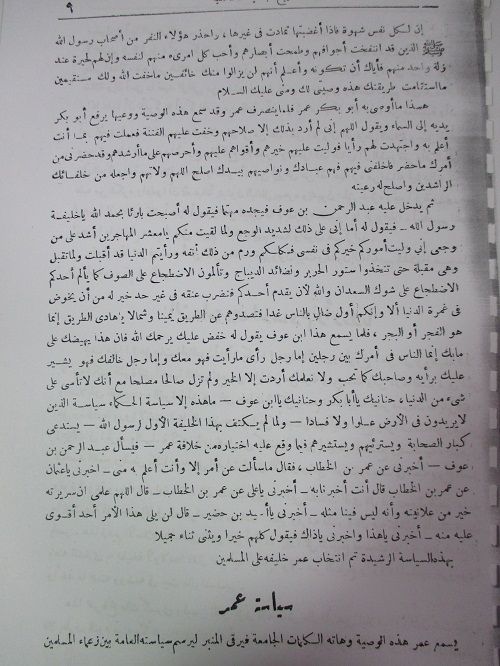 ٩
إن لكل نفس شهوة فاذا أغضبتها تمادت في غيرها ، راحذر هؤلاء النفر من أصحاب رسول الله
ﷺ الذين قد انتفخت أجوافهم وطمحت أبصارهم وأحب كل امرىء منهم لنفسه وإن لهم لحيرة عند
زلة واحد منهم فأياك أن تكونه وأعلم أنهم لن يزالوا منك خائفين ماخفت الله ولك مستقيمين
ما استقامت طريقتك هذه وصيتي لك ومني عليك السلام
هـذا ما أوصى به أبو بكر عمر فلما ينصرف عمر وقد سمع هذه الوصية ووعيها يرفع أبو بكر
يديه إلى السماء ويقول اللهم إني لم أرد بذلك إلا صلاحهم وخفت عليهم الفتنة فعملت فيهم بما أنت
أعلم به واجتهدت لهم رأيا فوليت عليهم خيرهم وأقواهم عليهم وأحرصهم على ما أرشدهم وقد حضرني من
أمرك ما حضر فاخلفني فيهم فهم عبادك ونواصيهم بيدك اصلح اللهم ولاتهم واجعله من خلفائك
الراشدين واصلح له رعيته
ثم يدخل عليه عبد الرحمن بن عوف فيجده مهتما فيقول له أصبحت بارئا بحمد الله ياخليفة
رسول الله - فيقول له أما إني على ذلك لشديد الوجع ولما لقيت منكم يامعشر المهاجرين أشد على من
وجعي إني وليت أموركم خيركم في نفسي فكلكم ورم من ذلك أنفه ورأيتم الدنيا قد أقبلت ولما تقبل
وهي مقبلة حتى تتخذوا ستور الحرير ونضائد الديباج وتألمون الاضطجاع على الصوف كما يألم أحدكم
الاضطجاع على شوك السعدان والله لان يقدم أحدكم فتضرب عنقه في غير حد خير له من أن يخوض
في غمرة الدنيا ألا وإنكم أول ضال بالناس غدا فتصدوهم عن الطريق يمينا وشمالا ياهادى الطريق إنما
هو الفجر أو البجر ، فلما يسمع هذا ابن عوف يقول له خفض عليك يرحمك الله فان هذا يهيضك على
مابك إنما الناس في أمرك بين رجلين إما رجل رأى مارأيت فهو معك وإما رجل خالفك فهو يشير
عليك برأيه وصاحبك كما تحب ولا نعلمك أردت إلا الخير ولم تزل صالحا مصلحا مع أنك لا تأسى على
شىء من الدنيا ، حنانيك يا أبا بكر وحنانيك يا ابن عوف - ما هذه إلا سياسة الحكماء سياسة الذين
لا يريدون في الأرض عـلوا ولا فسادا - ولما لم يسكتف بهذا الخليفة الأول لرسول الله - يستدعى
كبار الصحابة ويسترئيهم ويستشيرهم فيما وقع عليه اختياره من خلافة عمر - فيسأل عبد الرحمن بن
عوف - أخبرني عن عمر بن الخطاب ، فقال ماسألت عن أمر إلا وأنت أعلم به مني - اخبرني ياعثمان
عن عمر بن الخطاب قال أنت أخبرنا به - أخبرني ياعلي عن عمر بن الخطاب - قال اللهم علمي ان سريرته
خير من علانيته وأنه ليس فينا مثله - أخبرني يا أسيد بن حضير - قال لن يلي هذا الأمر أحد أقوى
عليه منه - أخبرني ياهذا واخبرني ياذاك فيقول كلهم خيرا ويثنى ثناء جميلا
بهذه السياسة الرشيدة تم انتخاب عمر خليفه على المسلمين
سياسة عمر
يسمع عمر هذه الوصية وهاته السكلمات الجامعة فيرقى المنبر ليرسم سياسته العامة بين زعماء المسلمين